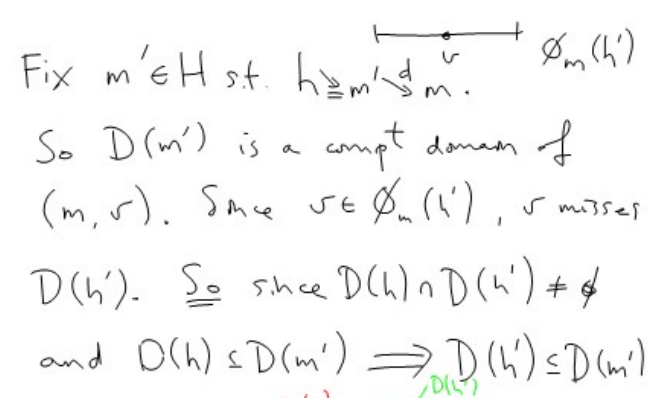 v ϕₘ(h')
Fix m' ∈ H s.t. h ⪰ m' ↘ᵈ m.
So D(m') is a compt domain of
(m, v). Since v ∈ ϕₘ(h'), v misses
D(h'). So since D(h) ∩ D(h') ≠ ϕ
and D(h) ⊆ D(m') ⟹ D(h') ⊆ D(m')
D(h')